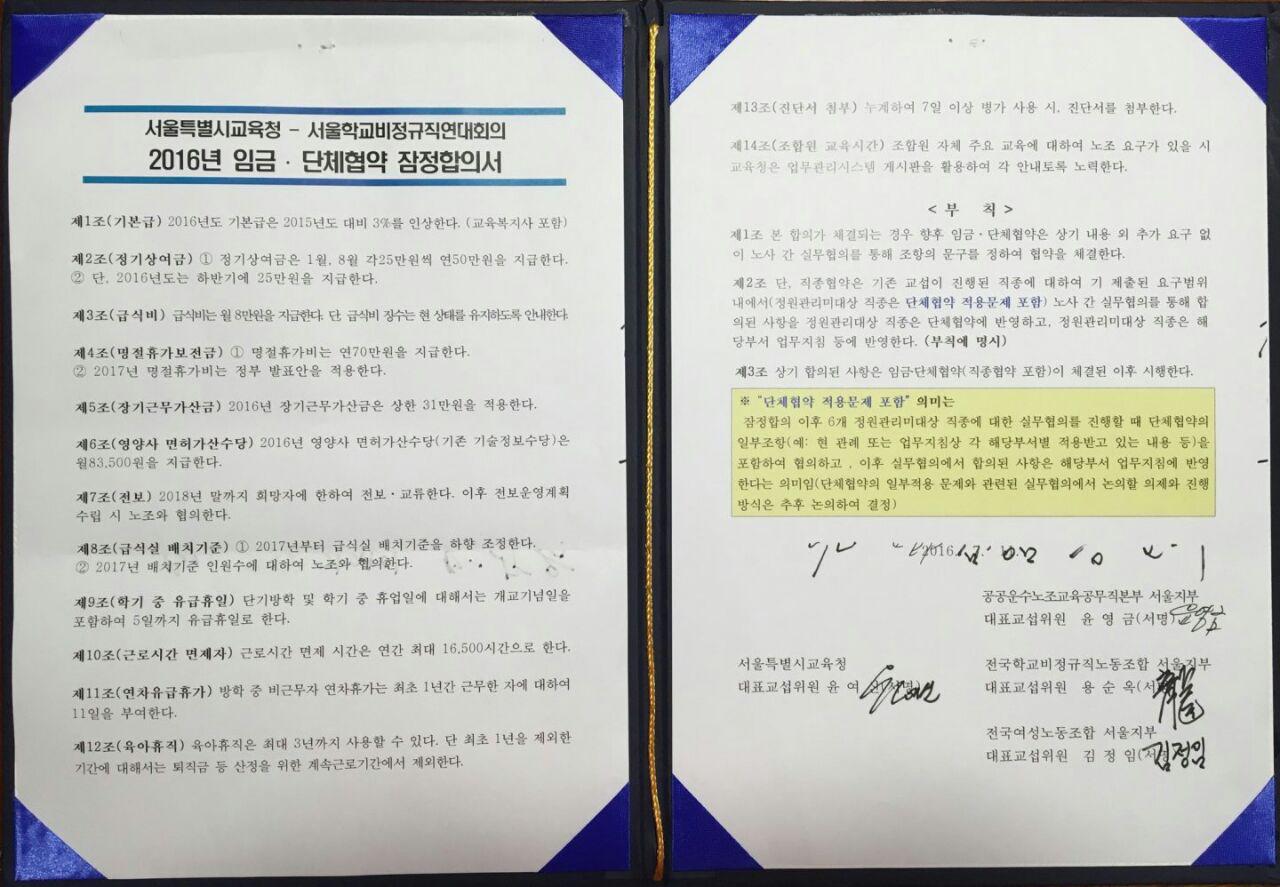 서울특별시교육청 - 서울학교비정규직연대회의
2016년 임금 · 단체협약 잠정합의서
제1조(기본급) 2016년도 기본급은 2015년도 대비 3%를 인상한다. (교육복지사 포함)
제2조(정기상여금) ① 정기상여금은 1월, 8월 각25만원씩 연50만원을 지급한다.
② 단, 2016년도는 하반기에 25만원을 지급한다.
제3조(급식비) 급식비는 월 8만원을 지급한다. 단, 급식비 징수는 현 상태를 유지하도록 안내한다.
제4조(명절휴가보전금) ① 명절휴가비는 연70만원을 지급한다.
② 2017년 명절휴가비는 정부 발표안을 적용한다.
제5조(장기근무가산금) 2016년 장기근무가산금은 상한 31만원을 적용한다.
제6조(영양사 면허가산수당) 2016년 영양사 면허가산수당(기존 기술정보수당)은
월83,500원을 지급한다.
제7조(전보) 2018년 말까지 희망자에 한하여 전보·교류한다. 이후 전보운영계획
수립 시 노조와 협의한다.
제8조(급식실 배치기준) ① 2017년부터 급식실 배치기준을 하향 조정한다.
② 2017년 배치기준 인원수에 대하여 노조와 협의한다.
제9조(학기 중 유급휴일) 단기방학 및 학기 중 휴업일에 대해서는 개교기념일을
포함하여 5일까지 유급휴일로 한다.
제10조(근로시간 면제자) 근로시간 면제 시간은 연간 최대 16,500시간으로 한다.
제11조(연차유급휴가) 방학 중 비근무자 연차휴가는 최초 1년간 근무한 자에 대하여
11일을 부여한다.
제12조(육아휴직) 육아휴직은 최대 3년까지 사용할 수 있다. 단 최초 1년을 제외한
기간에 대해서는 퇴직금 등 산정을 위한 계속근로기간에서 제외한다.
제13조(진단서 첨부) 누계하여 7일 이상 병가 사용 시, 진단서를 첨부한다.
제14조(조합원 교육시간) 조합원 자체 주요 교육에 대하여 노조 요구가 있을 시
교육청은 업무관리시스템 게시판을 활용하여 각 안내토록 노력한다.
< 부 칙 >
제1조 본 합의가 체결되는 경우 향후 임금·단체협약은 상기 내용 외 추가 요구 없
이 노사 간 실무협의를 통해 조항의 문구를 정하여 협약을 체결한다.
제2조 단, 직종협약은 기존 교섭이 진행된 직종에 대하여 기 제출된 요구범위
내에서(정원관리미대상 직종은 단체협약 적용문제 포함) 노사 간 실무협의를 통해 합
의된 사항을 정원관리대상 직종은 단체협약에 반영하고, 정원관리미대상 직종은 해
당부서 업무지침 등에 반영한다. (부칙에 명시)
제3조 상기 합의된 사항은 임금·단체협약(직종협약 포함)이 체결된 이후 시행한다.
※ "단체협약 적용문제 포함" 의미는
잠정합의 이후 6개 정원관리미대상 직종에 대한 실무협의를 진행할 때 단체협약의
일부조항(예: 현 관례 또는 업무지침상 각 해당부서별 적용받고 있는 내용 등)을
포함하여 협의하고 , 이후 실무협의에서 합의된 사항은 해당부서 업무지침에 반영
한다는 의미임(단체협약의 일부적용 문제와 관련된 실무협의에서 논의할 의제와 진행
방식은 추후 논의하여 결정)
2016.
공공운수노조교육공무직본부 서울지부
대표교섭위원 윤 영 금(서명) 윤영금
서울특별시교육청
대표교섭위원 윤 여
전국학교비정규직노동조합 서울지부
대표교섭위원 용 순 옥(서
전국여성노동조합 서울지부
대표교섭위원 김 정 임(서 김정임